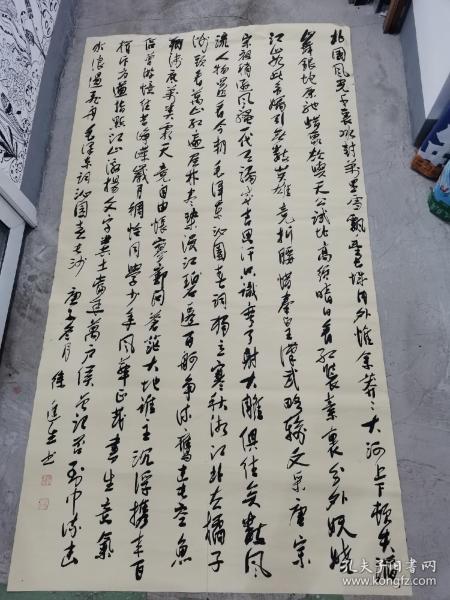 北国风光千里冰封万里雪飘望长城内外惟余莽莽大河上下顿失滔
舞银蛇原驰蜡象欲与天公试比高须晴日看红装素裹分外妖娆
江山如此多娇引无数英雄竞折腰惜秦皇汉武略输文采唐宗
宋祖稍逊风骚一代天骄成吉思汗只识弯弓射大雕俱往矣数风
流人物还看今朝毛泽东沁园春词独立寒秋湘江北去橘子
洲头看万山红遍层林尽染漫江碧透百舸争流鹰击长空鱼
翔浅底万类霜天竞自由怅寥廓问苍茫大地谁主沉浮携来百
侣曾游忆往昔峥嵘岁月稠恰同学少年风华正茂书生意气
挥斥方遒指点江山激扬文字粪土当年万户侯曾记否到中流击
水浪遏飞舟毛泽东词沁园春长沙庚子冬月书
孔夫子旧书网